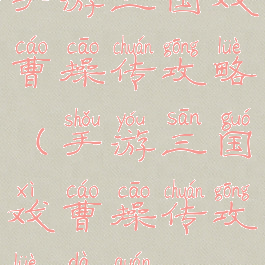 手游三国戏
cáo cāo chuán gōng lüè
曹操传攻略
shǒu yóu sān guó
（手游三国
xì cáo cāo chuán gōng
戏曹操传攻
lüè dà quán